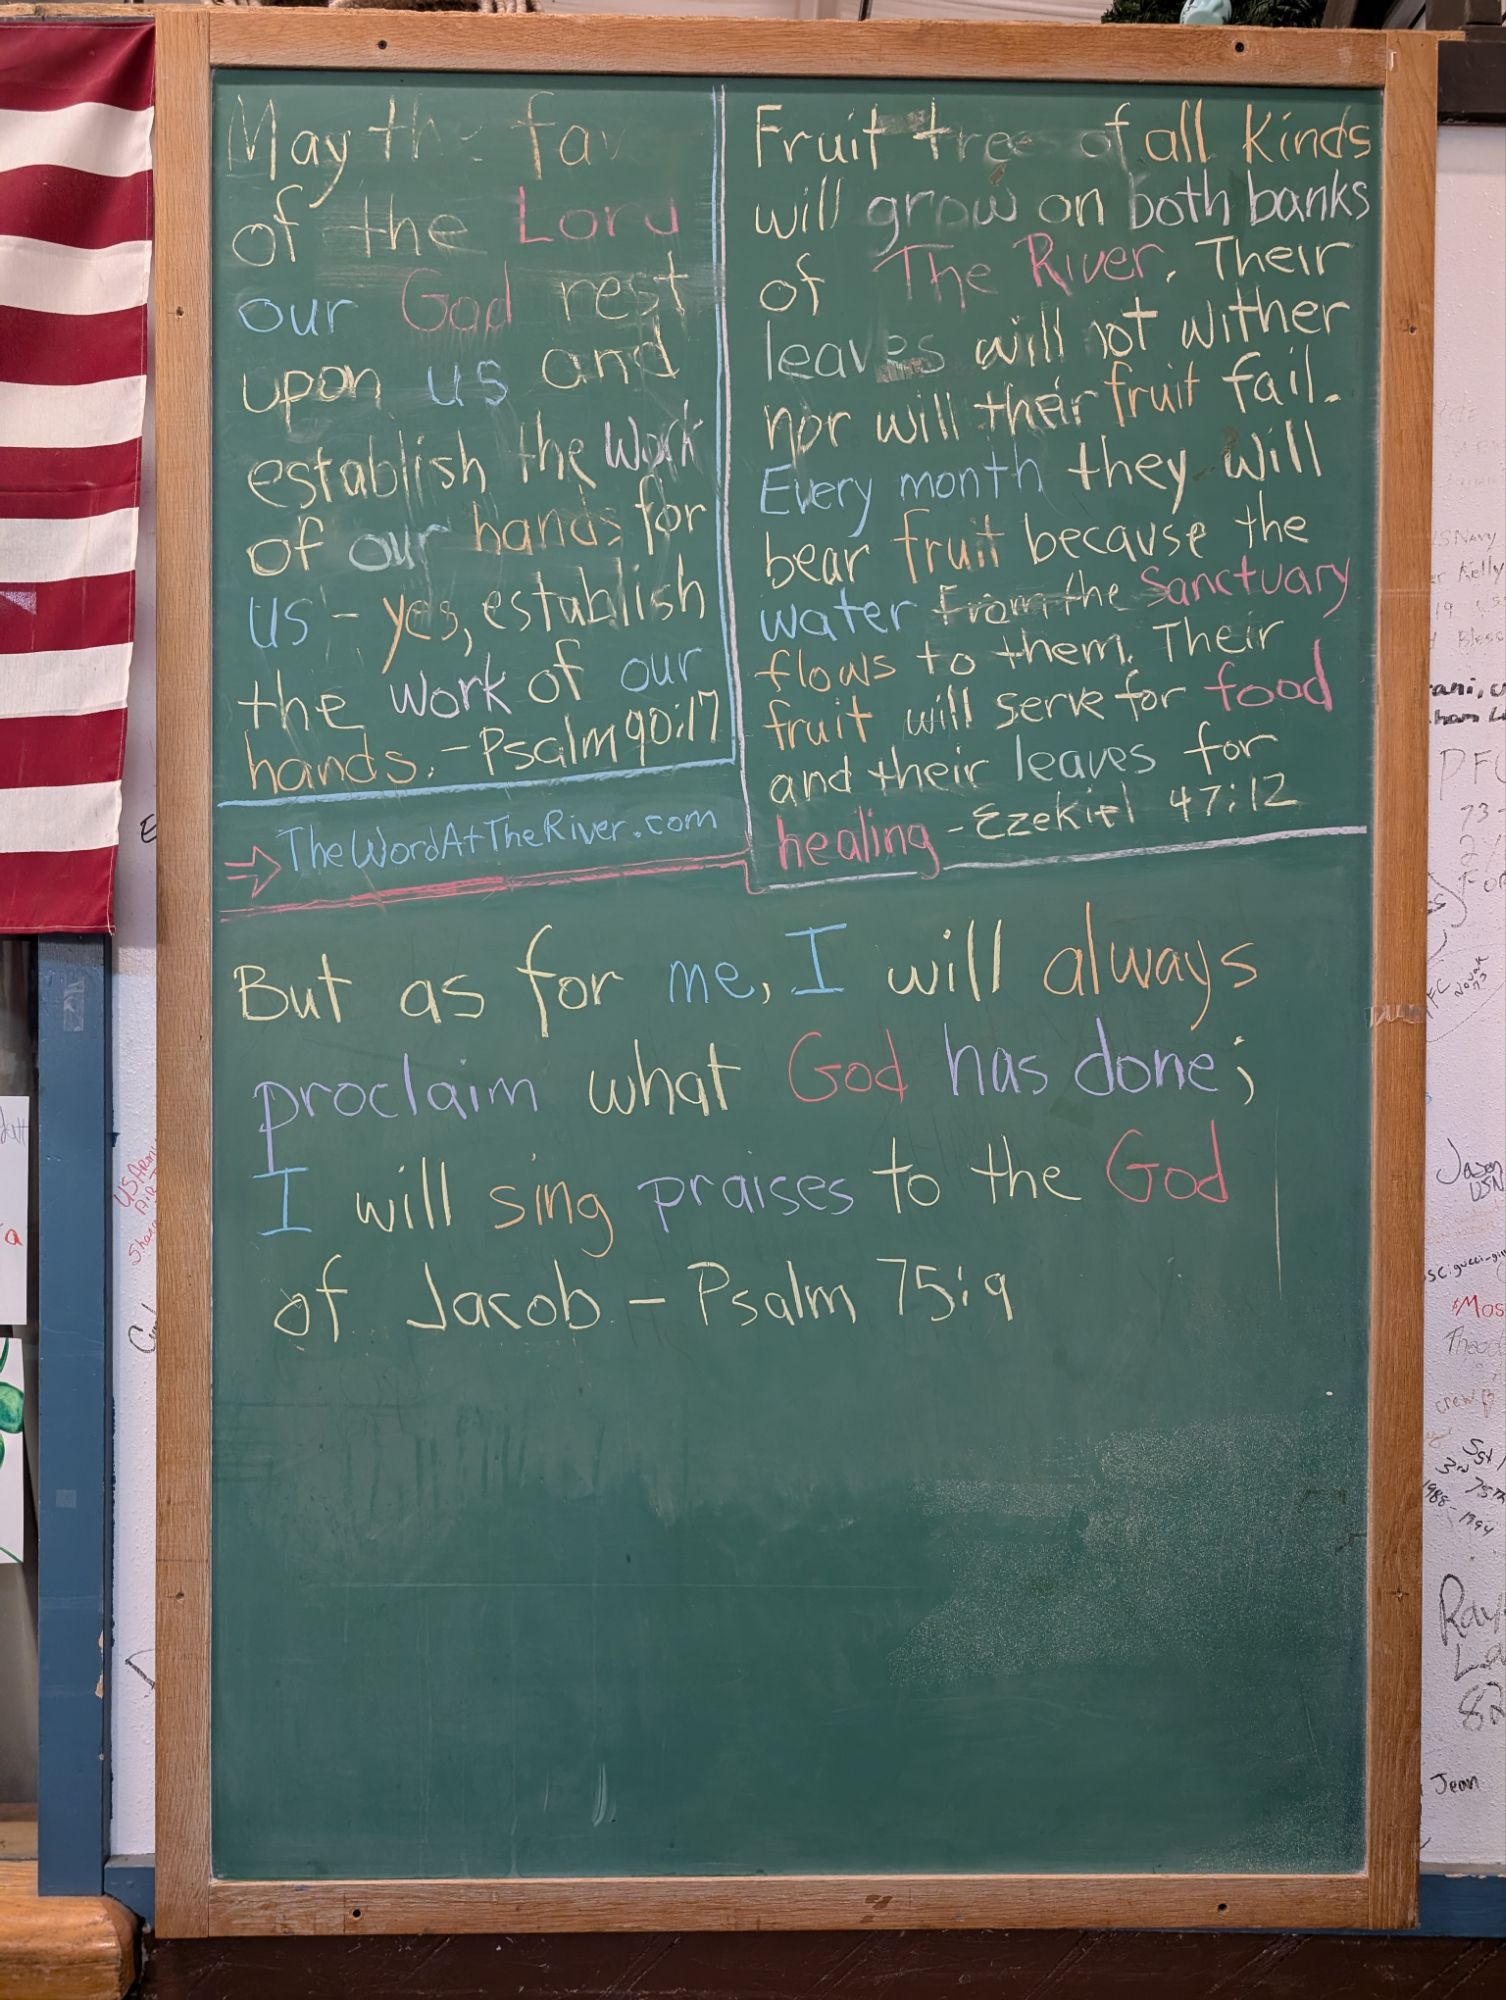 May the fav
of the Lord
our God rest
upon us and
establish the work
of our hands for
us - yes, establish
the work of our
hands. - Psalm 90:17
TheWordAtTheRiver.com
Fruit trees of all kinds
will grow on both banks
of The River. Their
leaves will not wither
nor will their fruit fail.
Every month they will
bear fruit because the
water from the Sanctuary
flows to them. Their
fruit will serve for food
and their leaves for
healing - Ezekiel 47:12
But as for me, I will always
proclaim what God has done;
I will sing praises to the God
of Jacob - Psalm 75:9
US Army
Air
Shane
US Navy
Kelly
19
Bless
PFC
73-
For
Jason
USN
Theod
crew
1986-1994
Ray
La
82
Jean